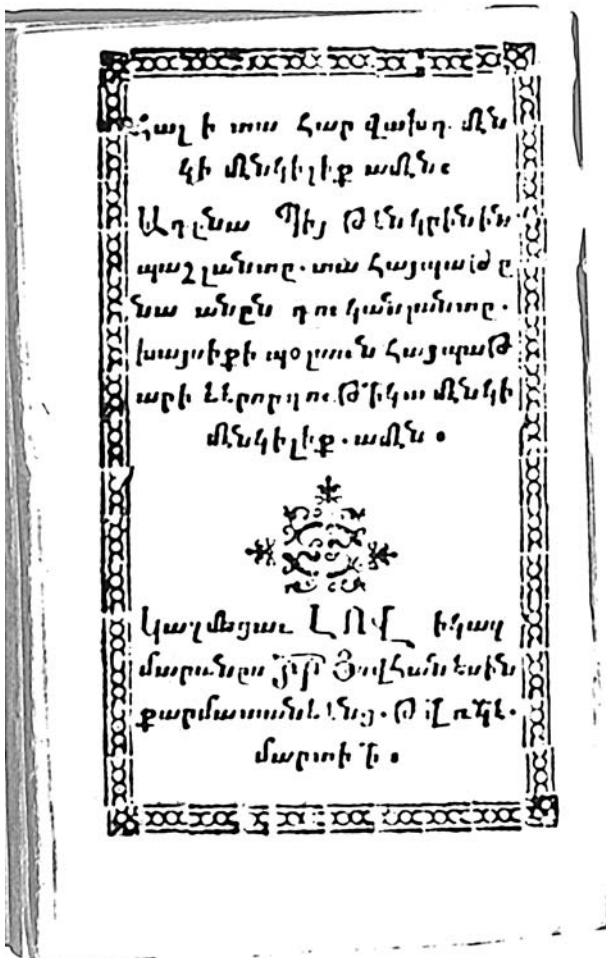 հալ ի տա հար վախդ. մեն
կի մենկիլիք ամեն։
Աղընա Պիյ Թենկրինին
պաշլանտը. տա հայպաթը
նա անըն դուկանլանտը.
խայսիքի պօլսուն հայպաթ
արի եերորդութ՟իկա մենկի
մենկիլիք. ամեն։
կազմեցաւ ԼՈՎ ի կազ
մարանըս Յովհաննեսին
քարմատանենց. Թվ
մարտի